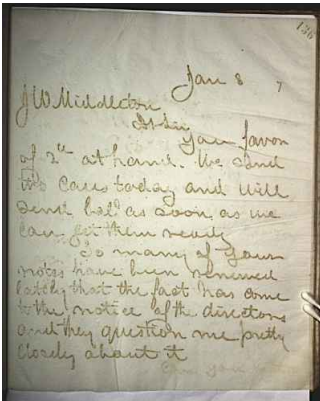 136
Jan 8 7
J W Middleton
Dr Sir
Your favor
of 2nd at hand. We send
two cases today and will
send bal as soon as we
can get them ready
So many of your
notes have been renewed
lately that the fact has come
to the notice of the directors
and they question me pretty
closely about it